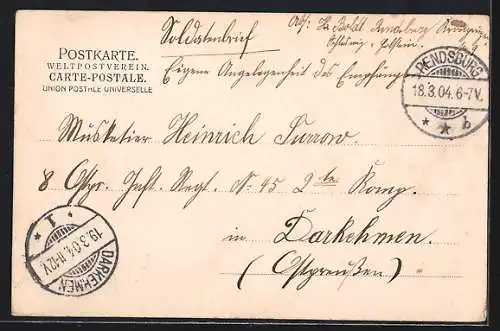 Soldatenbrief
Abs:
Rendsburg
Schleswig-Holstein
Eigene Angelegenheit des Empfängers
POSTKARTE.
WELTPOSTVEREIN.
CARTE-POSTALE.
UNION POSTALE UNIVERSELLE
RENDSBURG
18.3.04.6-7V.
* * b
Musketier Heinrich Furrow.
8 Ostpr. Inft. Regt. No 45 2te Komp.
in Darkehmen.
(Ostpreußen)
* 1 *
19.3.04.11-12V.
DARKEHMEN